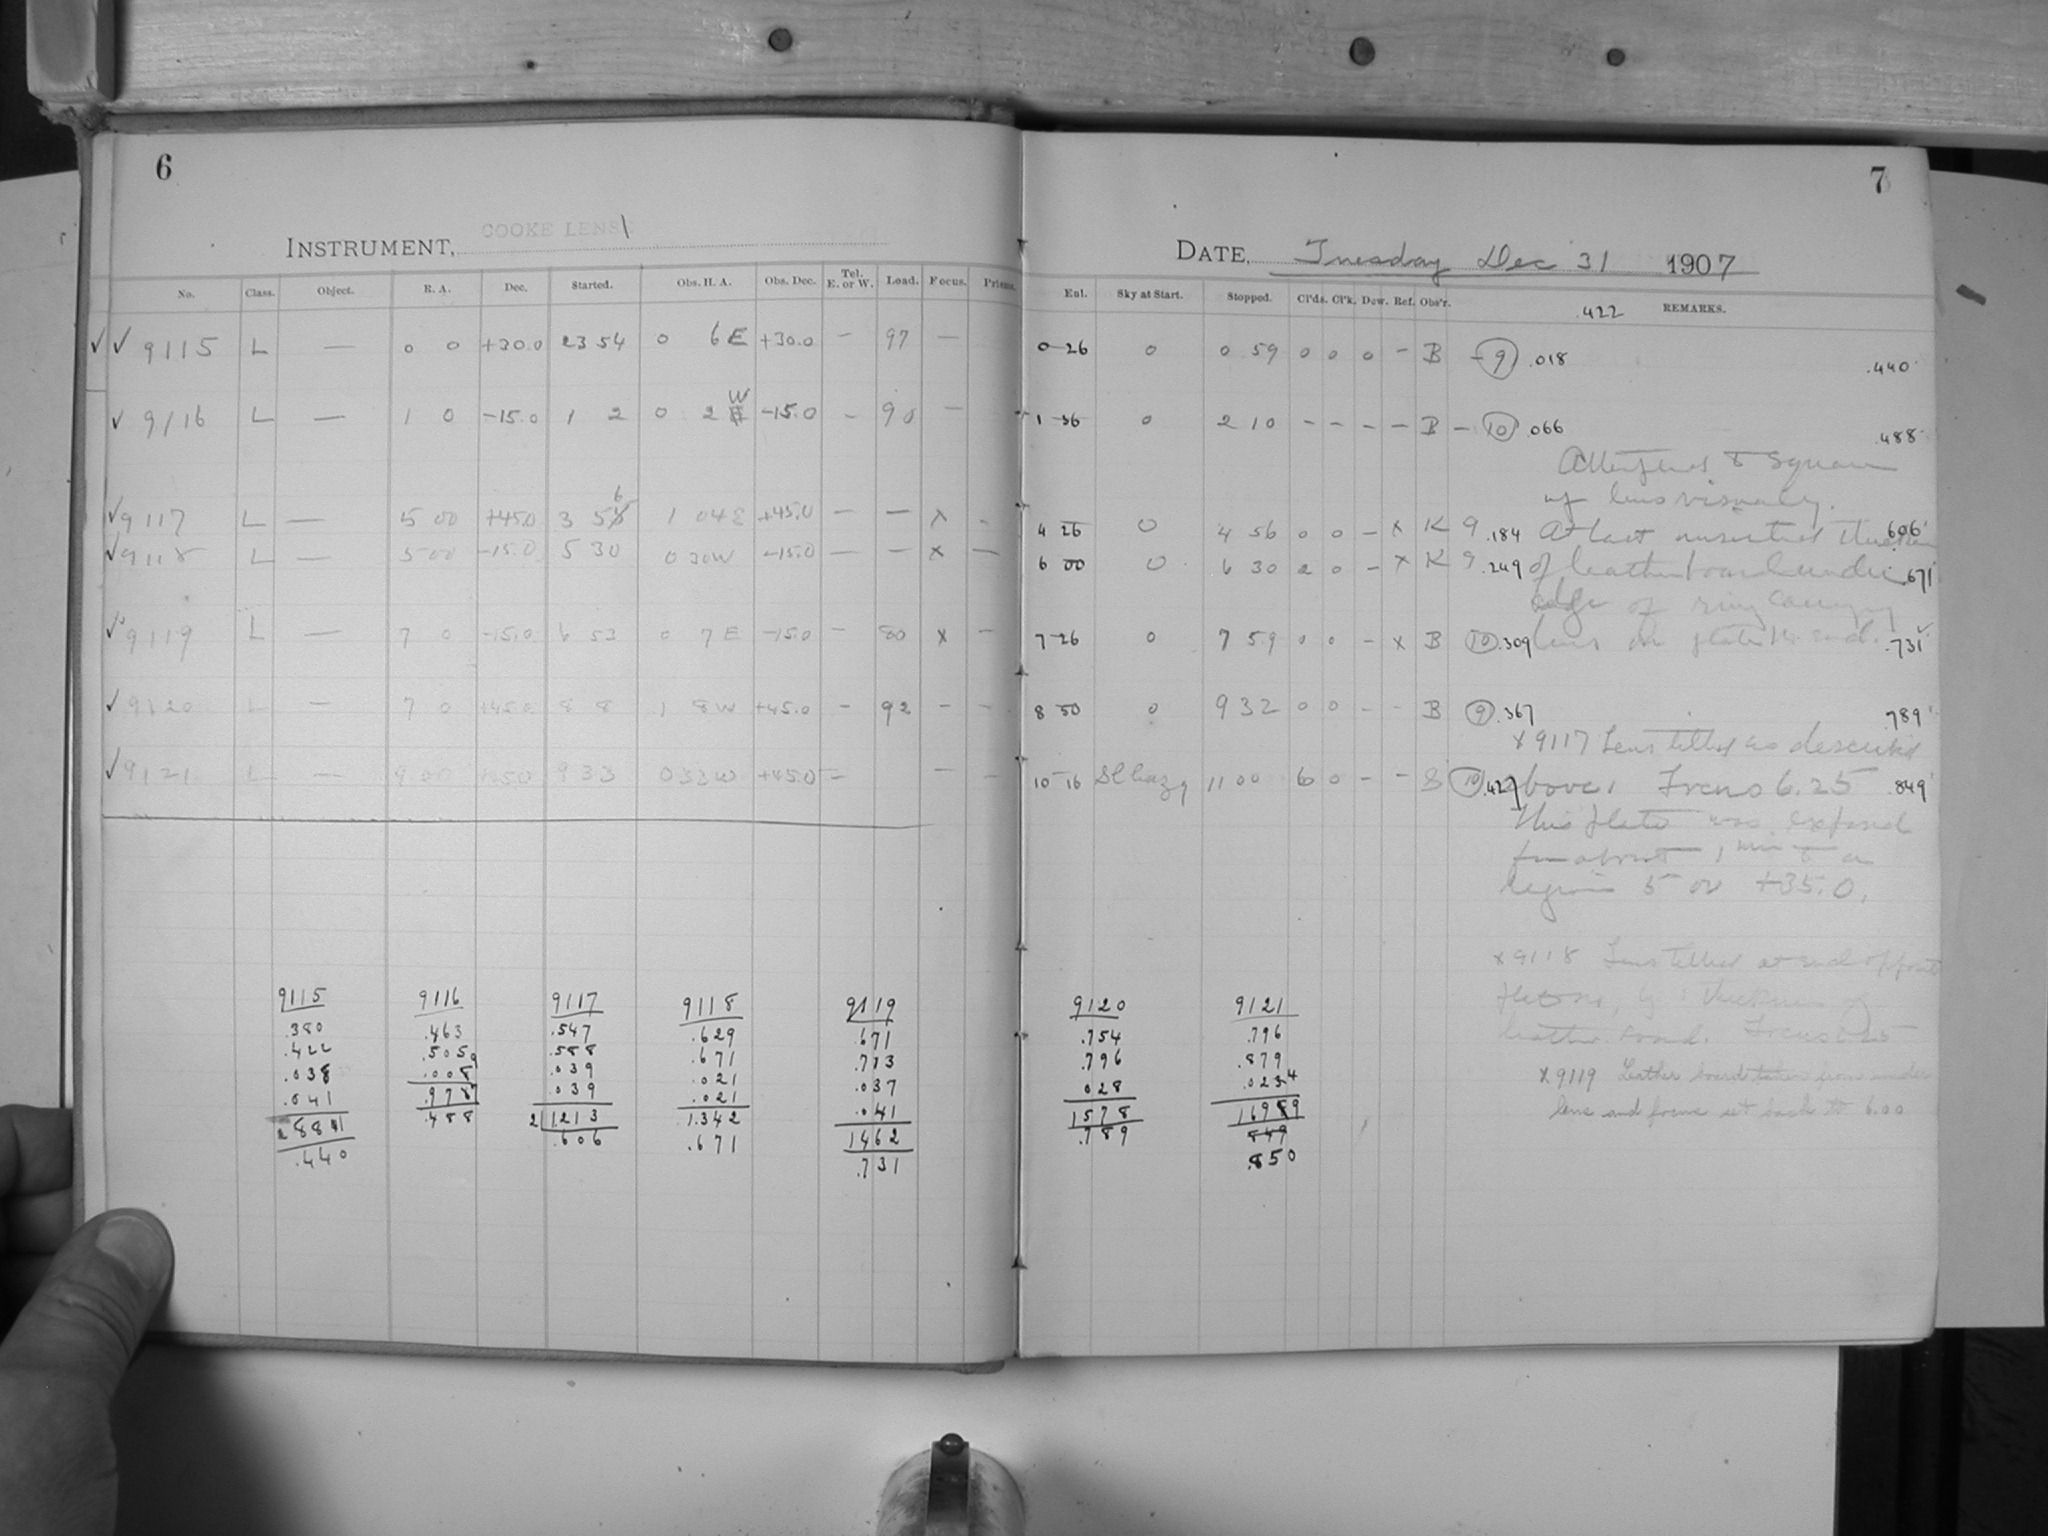 6
COOKE LENS
INSTRUMENT,
No. Class. Object. R. A. Dec. Started. Obs. H. A. Obs. Dec. Tel. E. or W. Load. Focus. Prisms.
✓ ✓ 9115 L — 0 0 +30.0 23 54 0 6 E +30.0 — 97 —
✓ 9116 L — 1 0 -15.0 1 2 0 2 W -15.0 - 90 —
✓ 9117 L — 5 00 +45.0 3 56 1 04 E +45.0 — — x -
✓ 9118 L — 5 00 -15.0 5 30 0 30 W -15.0 — — x —
✓ 9119 L — 7 0 -15.0 6 53 0 7 E -15.0 — 80 x —
✓ 9120 L — 7 0 +45.0 8 8 1 8 W +45.0 - 92 - -
✓ 9121 L — 9 00 +45.0 9 33 0 33 W +45.0 — — -
9115
.380
.422
.038
.041
2 881
.440
9116
.463
.505
.008
.978
.488
9117
.547
.588
.039
.039
2 1213
.606
9118
.629
.671
.021
.021
1.342
.671
9119
.671
.713
.037
.041
1462
.731
7
DATE, Tuesday Dec 31 1907
Exl. Sky at Start. Stopped. Cl'ds. Cl'k. Dew. Ref. Obs'r. .422 REMARKS.
0 26 0 0 59 0 0 0 - B - 9 .018 .440
1 36 0 2 10 - - - - B - 10 .066 .488
of lens visually.
4 26 0 4 56 0 0 - x K 9 .184 At last inserted .606
6 00 0 6 30 2 0 - x K 9 .249 of leather board under .671
edge of ring carrying
7 26 0 7 59 0 0 - x B 10 .309 lens on end. .731
8 50 0 9 32 0 0 - - B 9 .367 .789
x 9117 Lens tilted as described
10 16 Sl hazy 11 00 6 0 - - S 10 .427 above. Focus 6.25 .849
This plate was exposed
for about 1 min on
region 5 00 +35.0.
x 9118 Lens tilted at end opposite
plate no, by thickness of
leather board. Focus 6.25
x 9119 Leather board taken from under
lens and focus set back to 6.00
9120
.754
.796
028
1578
.789
9121
.796
.879
.0234
16989
.849
.850